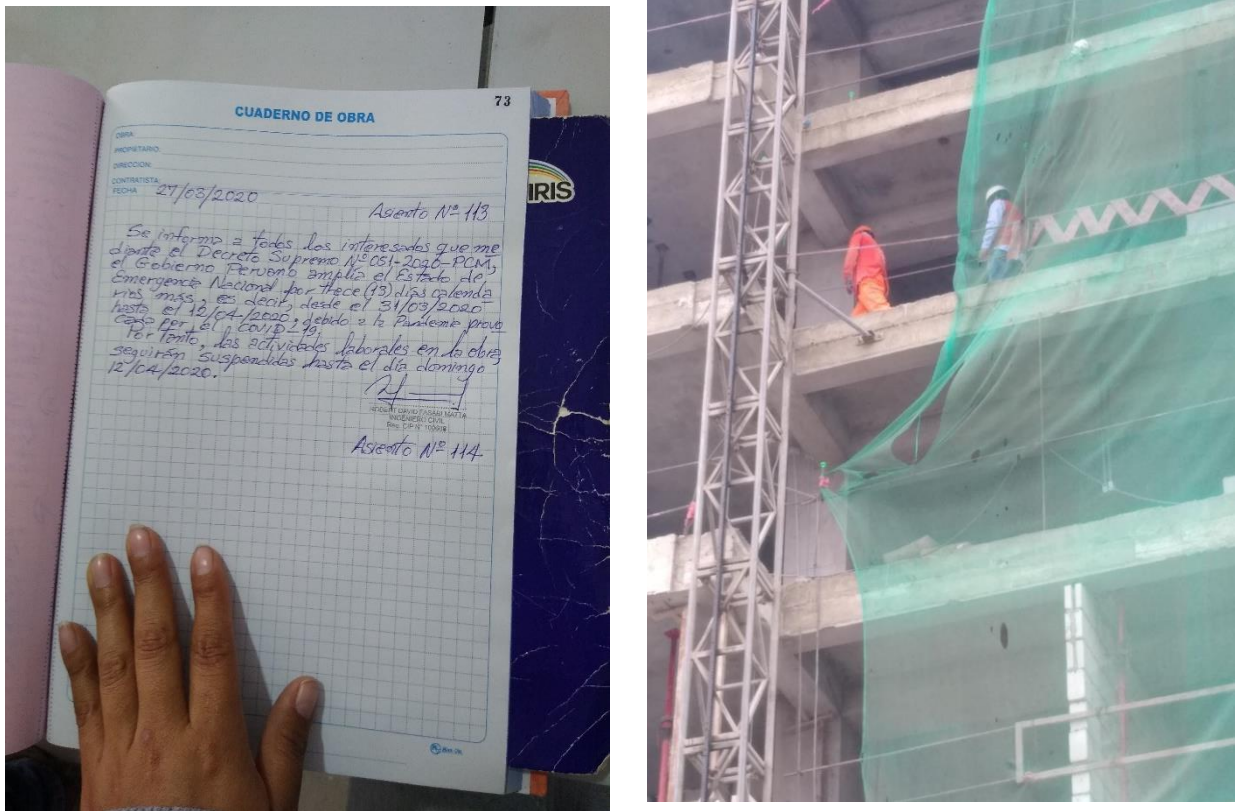 73
CUADERNO DE OBRA
OBRA:
PROPIETARIO:
DIRECCION:
CONTRATISTA:
FECHA 27/03/2020
Asiento Nº 113
Se informa a todos los interesados que me
diante el Decreto Supremo Nº 051-2020-PCM,
el Gobierno Peruano amplia el Estado de
Emergencia Nacional por trece (13) días calenda
rios más, es decir, desde el 31/03/2020
hasta el 12/04/2020, debido a la Pandemia provo
cada por el COVID-19.
Por tanto, las actividades laborales en la obra,
seguirán suspendidas hasta el día domingo
12/04/2020.
INGENIERO CIVIL
Reg. CIP Nº
Asiento Nº 114
IRIS